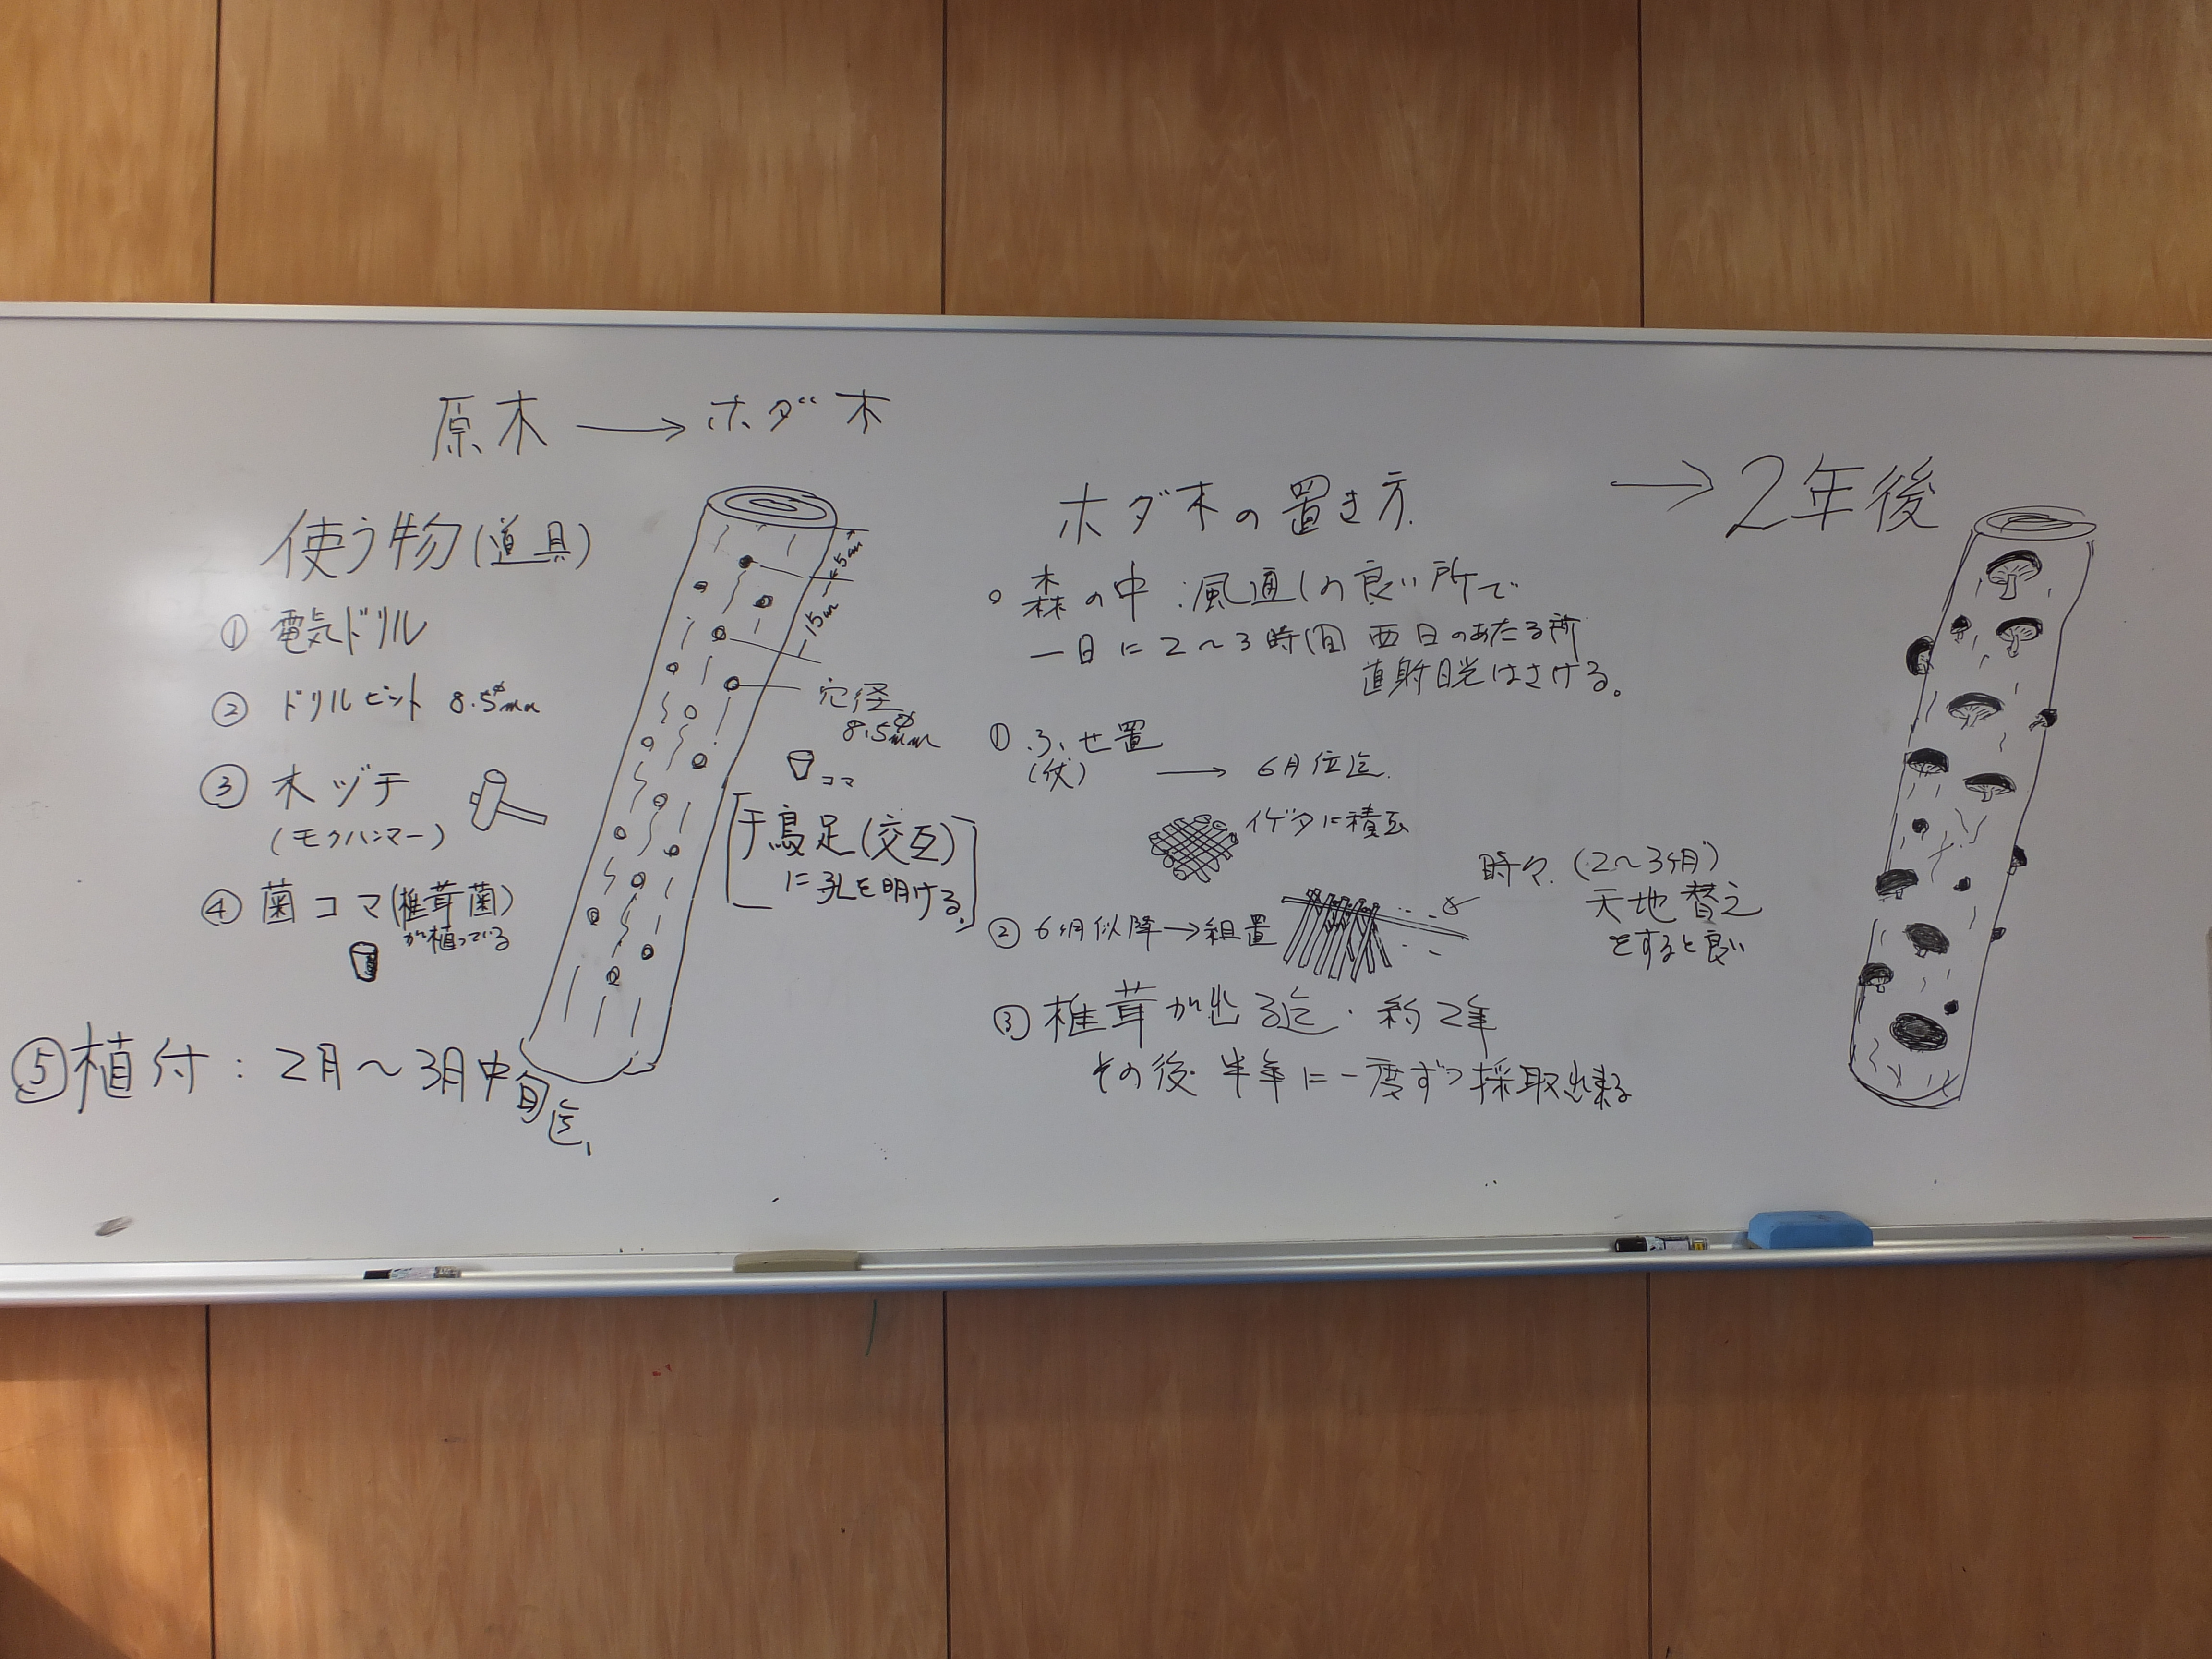 原木 → ホダ木
使う物(道具)
① 電気ドリル
② ドリルビット 8.5φmm
③ 木ヅチ
(モクハンマー)
④ 菌コマ(椎茸菌)
が植っている
⑤ 植付:2月〜3月中旬迄
5cm
15cm
穴径
8.5φmm
コマ
千鳥足(交互)
に孔を明ける。
ホダ木の置き方
○ 森の中:風通しの良い所で
一日に2〜3時間 西日のあたる所
直射日光はさける。
① ふせ置
(伏)
→ 6月位迄
イゲタに積ム
② 6月以降→組置
時々(2〜3ヶ月)
天地替え
をすると良い
③ 椎茸が出る迄・約2年
その後半年に一度ずつ採取出来る
→ 2年後